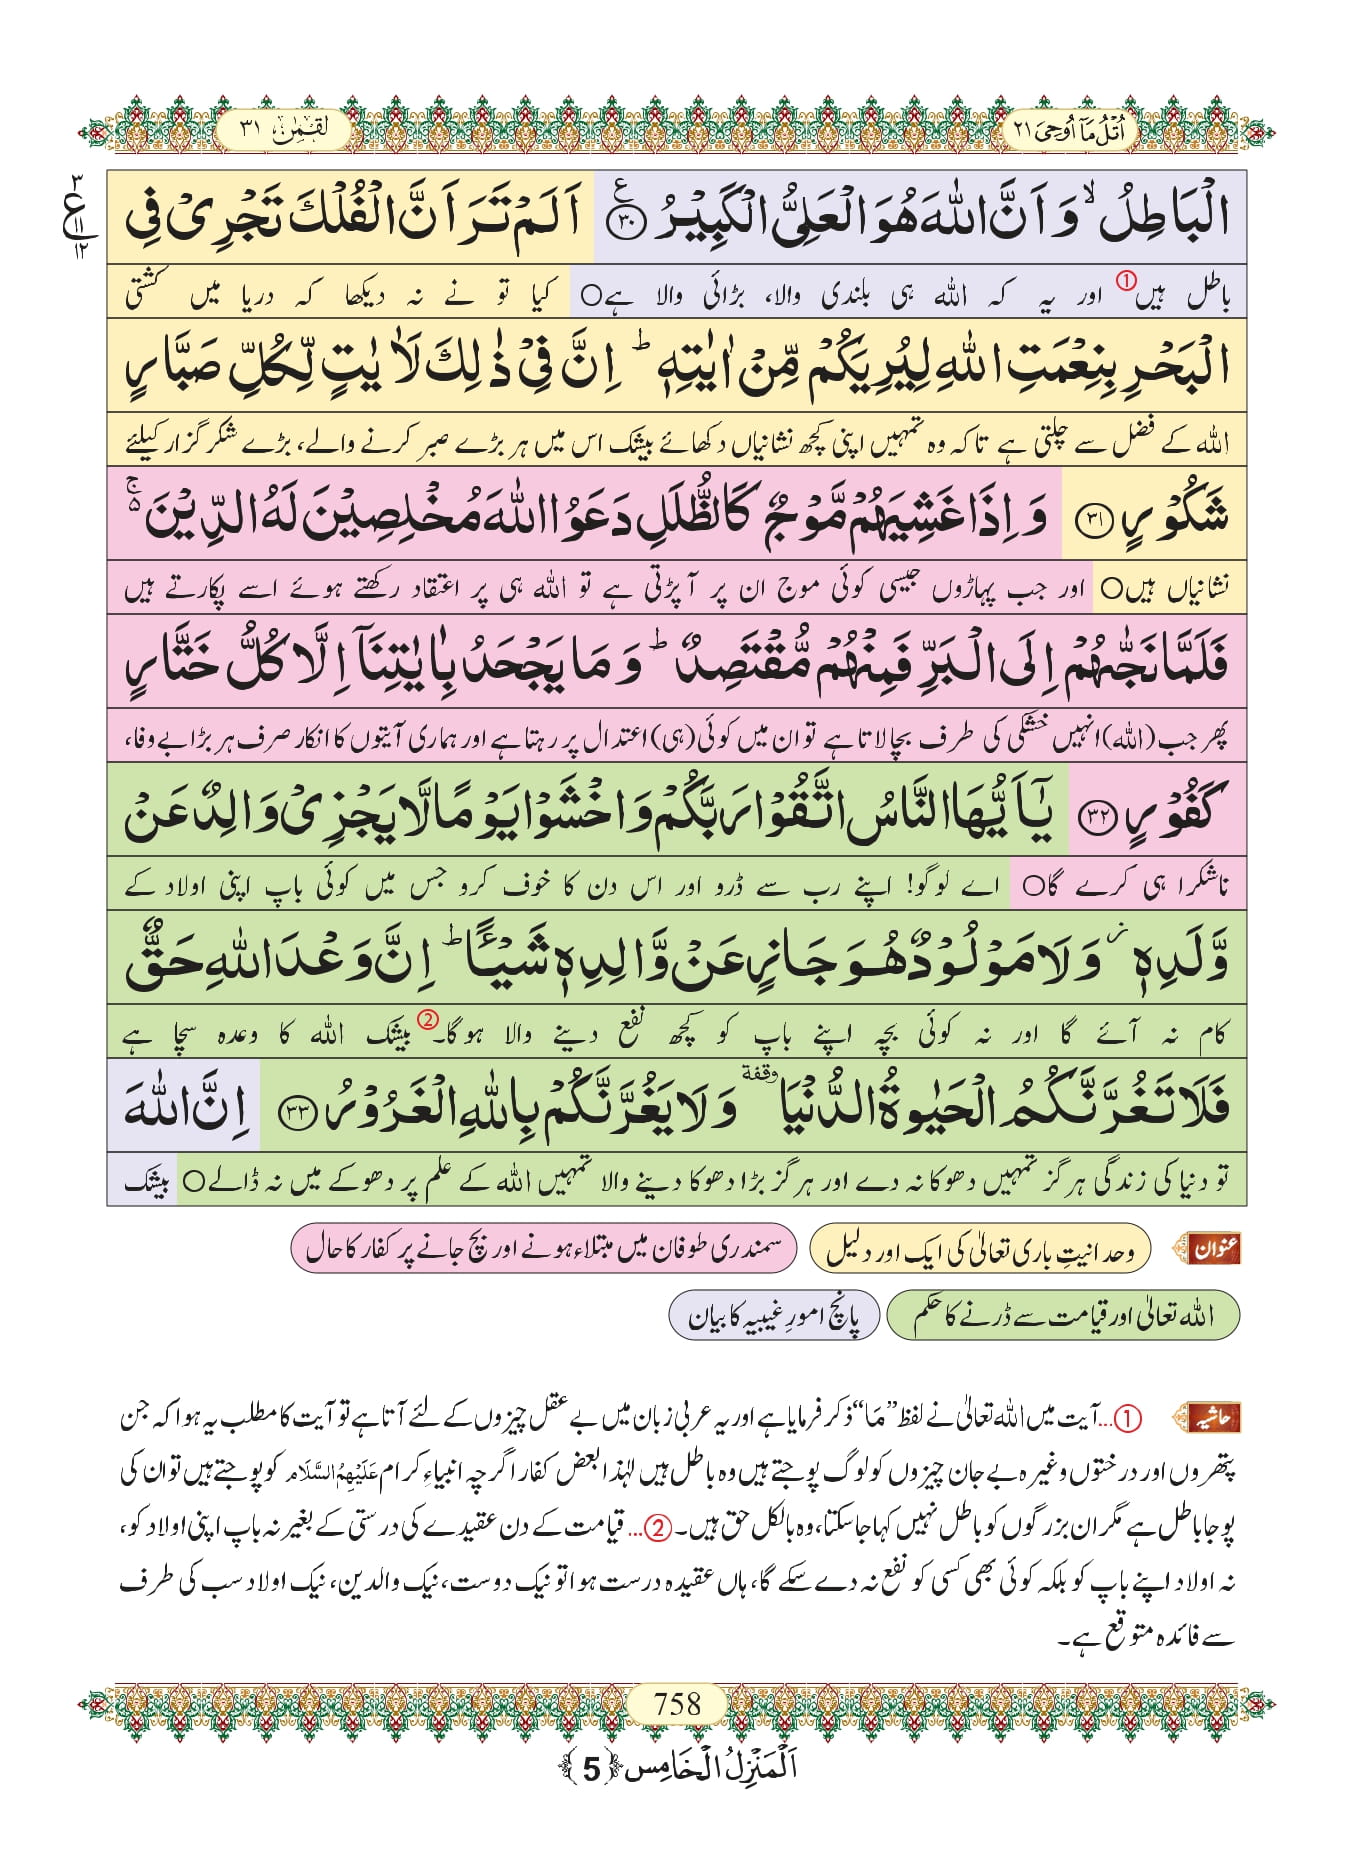 اُتْلُ مَاۤ اُوْحِیَ ۲۱
لقمٰن ۳۱
الْبَاطِلُۙ وَ اَنَّ اللّٰهَ هُوَ الْعَلِیُّ الْكَبِیْرُ۠(۳۰) اَلَمْ تَرَ اَنَّ الْفُلْكَ تَجْرِیْ فِی
۳ ع ۱۱ ۱۲
باطل ہیں① اور یہ کہ اللہ ہی بلندی والا، بڑائی والا ہے○ کیا تو نے نہ دیکھا کہ دریا میں کشتی
الْبَحْرِ بِنِعْمَتِ اللّٰهِ لِیُرِیَكُمْ مِّنْ اٰیٰتِهٖؕ اِنَّ فِیْ ذٰلِكَ لَاٰیٰتٍ لِّكُلِّ صَبَّارٍ
اللہ کے فضل سے چلتی ہے تاکہ وہ تمہیں اپنی کچھ نشانیاں دکھائے بیشک اس میں ہر بڑے صبر کرنے والے، بڑے شکر گزار کیلئے
شَكُوْرٍ(۳۱) وَ اِذَا غَشِیَهُمْ مَّوْجٌ كَالظُّلَلِ دَعَوُا اللّٰهَ مُخْلِصِیْنَ لَهُ الدِّیْنَ ۵ۚ
نشانیاں ہیں○ اور جب پہاڑوں جیسی کوئی موج ان پر آپڑتی ہے تو اللہ ہی پر اعتقاد رکھتے ہوئے اسے پکارتے ہیں
فَلَمَّا نَجّٰىهُمْ اِلَى الْبَرِّ فَمِنْهُمْ مُّقْتَصِدٌؕ وَ مَا یَجْحَدُ بِاٰیٰتِنَاۤ اِلَّا كُلُّ خَتَّارٍ
پھر جب (اللہ) انہیں خشکی کی طرف بچا لاتا ہے تو ان میں کوئی (ہی) اعتدال پر رہتا ہے اور ہماری آیتوں کا انکار صرف ہر بڑا بے وفا،
كَفُوْرٍ(۳۲) یٰۤاَیُّهَا النَّاسُ اتَّقُوْا رَبَّكُمْ وَ اخْشَوْا یَوْمًا لَّا یَجْزِیْ وَالِدٌ عَنْ
ناشکرا ہی کرے گا○ اے لوگو! اپنے رب سے ڈرو اور اس دن کا خوف کرو جس میں کوئی باپ اپنی اولاد کے
وَّلَدِهٖ٘ وَ لَا مَوْلُوْدٌ هُوَ جَازٍ عَنْ وَّالِدِهٖ شَیْــٴًـاؕ اِنَّ وَعْدَ اللّٰهِ حَقٌّ
کام نہ آئے گا اور نہ کوئی بچہ اپنے باپ کو کچھ نفع دینے والا ہوگا۔② بیشک اللہ کا وعدہ سچا ہے
فَلَا تَغُرَّنَّكُمُ الْحَیٰوةُ الدُّنْیَاٙ وقفة وَ لَا یَغُرَّنَّكُمْ بِاللّٰهِ الْغَرُوْرُ(۳۳) اِنَّ اللّٰهَ
تو دنیا کی زندگی ہرگز تمہیں دھوکا نہ دے اور ہرگز بڑا دھوکا دینے والا تمہیں اللہ کے علم پر دھوکے میں نہ ڈالے○ بیشک
عنوان وحدانیتِ باری تعالیٰ کی ایک اور دلیل سمندری طوفان میں مبتلاء ہونے اور بچ جانے پر کفار کا حال
اللہ تعالیٰ اور قیامت سے ڈرنے کا حکم پانچ امورِ غیبیہ کا بیان
حاشیہ ①...آیت میں اللہ تعالیٰ نے لفظ ”مَا“ ذکر فرمایا ہے اور یہ عربی زبان میں بے عقل چیزوں کے لئے آتا ہے تو آیت کا مطلب یہ ہوا کہ جن
پتھروں اور درختوں وغیرہ بے جان چیزوں کو لوگ پوجتے ہیں وہ باطل ہیں لہٰذا بعض کفار اگرچہ انبیاءِ کرام عَلَیْہِمُ السَّلَام کو پوجتے ہیں تو ان کی
پوجا باطل ہے مگر ان بزرگوں کو باطل نہیں کہا جاسکتا، وہ بالکل حق ہیں۔ ②... قیامت کے دن عقیدے کی درستی کے بغیر نہ باپ اپنی اولاد کو،
نہ اولاد اپنے باپ کو بلکہ کوئی بھی کسی کو نفع نہ دے سکے گا، ہاں عقیدہ درست ہوا تو نیک دوست، نیک والدین، نیک اولاد سب کی طرف
سے فائدہ متوقع ہے۔
758
اَلْمَنْزِلُ الْخَامِس ﴿5﴾